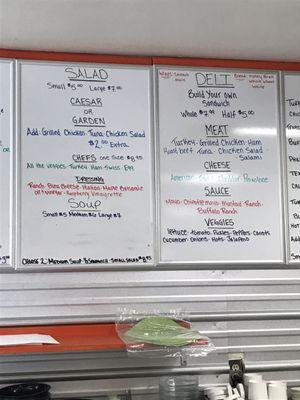 SALAD
Small $5.00 Large $7.00
CAESAR
OR
GARDEN
Add: Grilled Chicken Tuna Chicken Salad
$2.00
Extra
CHEFS one size $8.95
All the veggies Turkey Ham Swiss Egg
DRESSING
Ranch Bleu Cheese Italian House Balsamic
Oil Vinegar Raspberry Vinaigrette
Soup
Small $5 Medium $6 Large $8
Choose 2 Medium Soup ½ Sandwich Small Salad
DELI
Wraps
Bread Honey Wheat
Build your own
Sandwich
Whole $7.99 Half $5.00
MEAT
Turkey Grilled Chicken Ham
Roast beef Tuna Chicken Salad
Salami
CHEESE
American Provolone
SAUCE
Mayo Chipotle mayo Mustard Ranch
Buffalo Ranch
VEGGIES
Lettuce Tomato Pickles Peppers Carrots
Cucumber Onions Hots Jalapeño